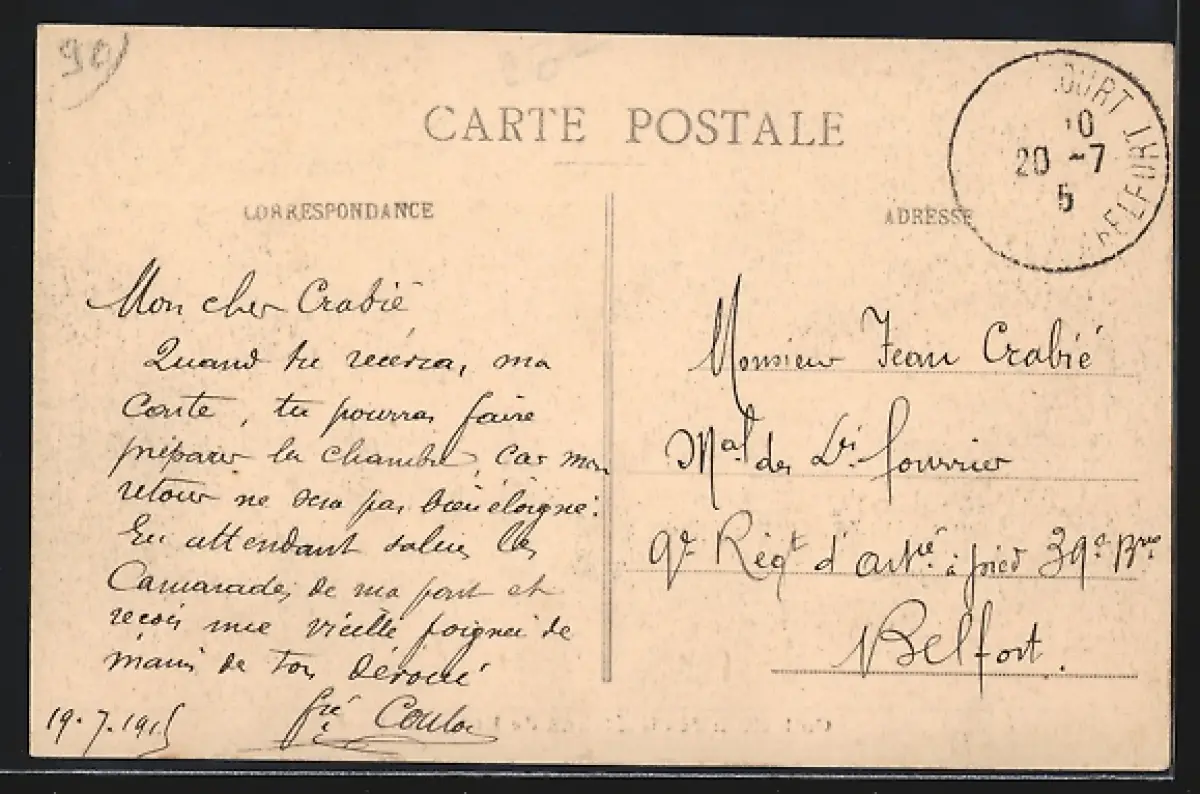 90
CARTE POSTALE
CORRESPONDANCE
ADRESSE
COURT TRE DE BELFORT
10
20 -7
5
Mon cher Crabié
Quand tu recevra, ma
Carte, tu pourras faire
préparer la chambre, car mon
retour ne sera pas bien éloigné.
En attendant salue les
Camarades de ma part et
reçois une vieille poignée de
mains de ton Dévoué
19.7.1915
Monsieur Jean Crabié
Mal des Lis fourrier
9e Régt d'artie à pied 39e Brie
Belfort.